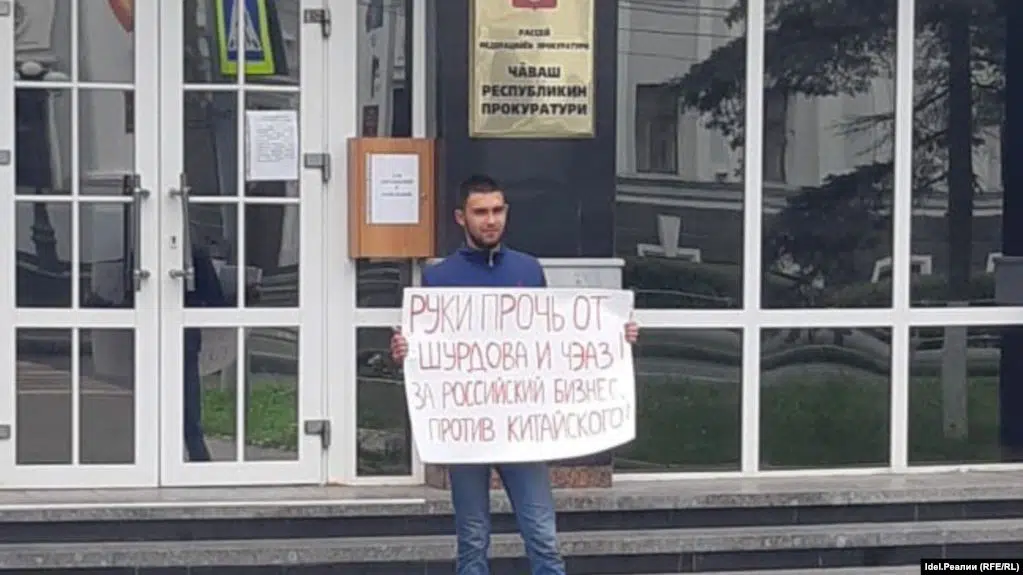 РАССЕЙ
ФЕДЕРАЦИЙĔН ПРОКУРАТУРИ
ЧӐВАШ
РЕСПУБЛИКИН
ПРОКУРАТУРИ
РУКИ ПРОЧЬ ОТ
ШУРДОВА И ЧЭАЗ!
ЗА РОССИЙСКИЙ БИЗНЕС,
ПРОТИВ КИТАЙСКОГО!
Idel.Реалии (RFE/RL)